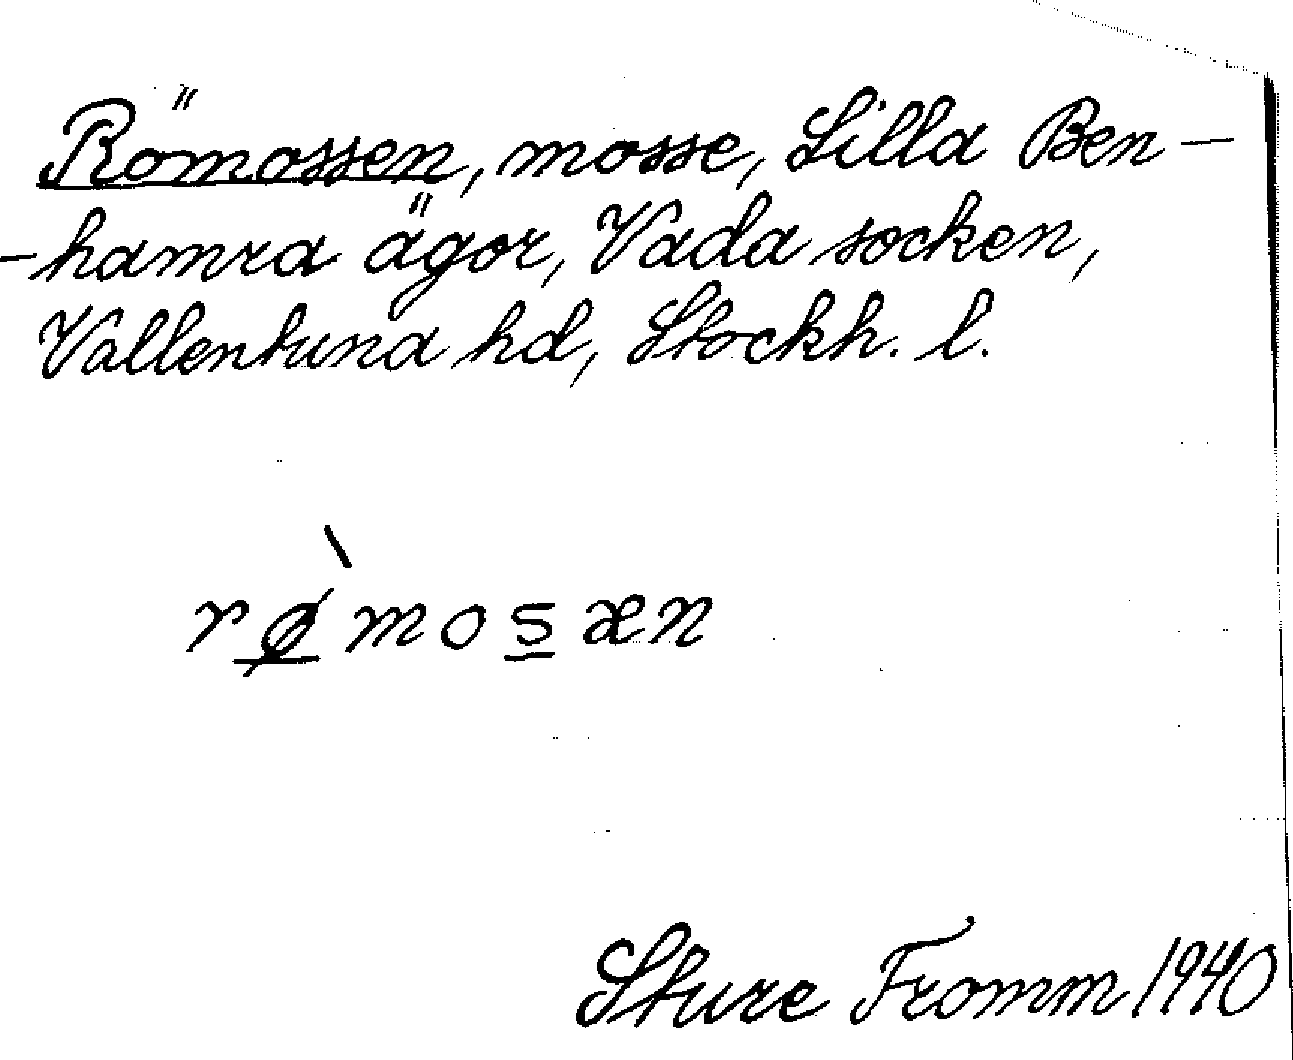 Römossen, mosse, Lilla Ben-
-hamra ägor, Vada socken,
Vallentuna hd, Stockh. l.
rø̲̀mos̲æn
Sture Fromm 1940